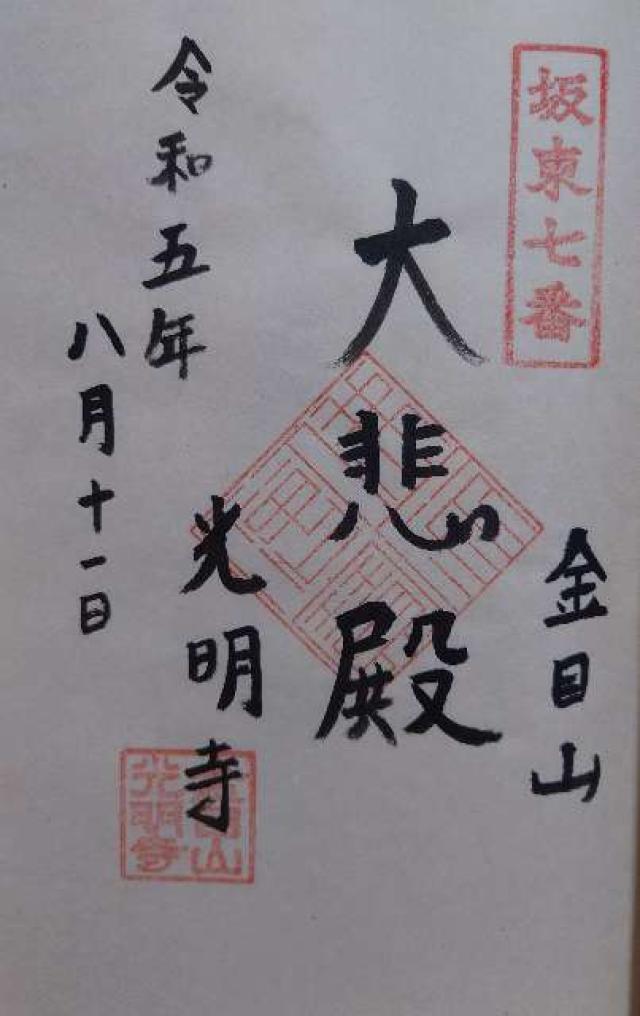 坂東七番
金目山
大悲殿
光明寺
令和五年
八月十一日
光明寺